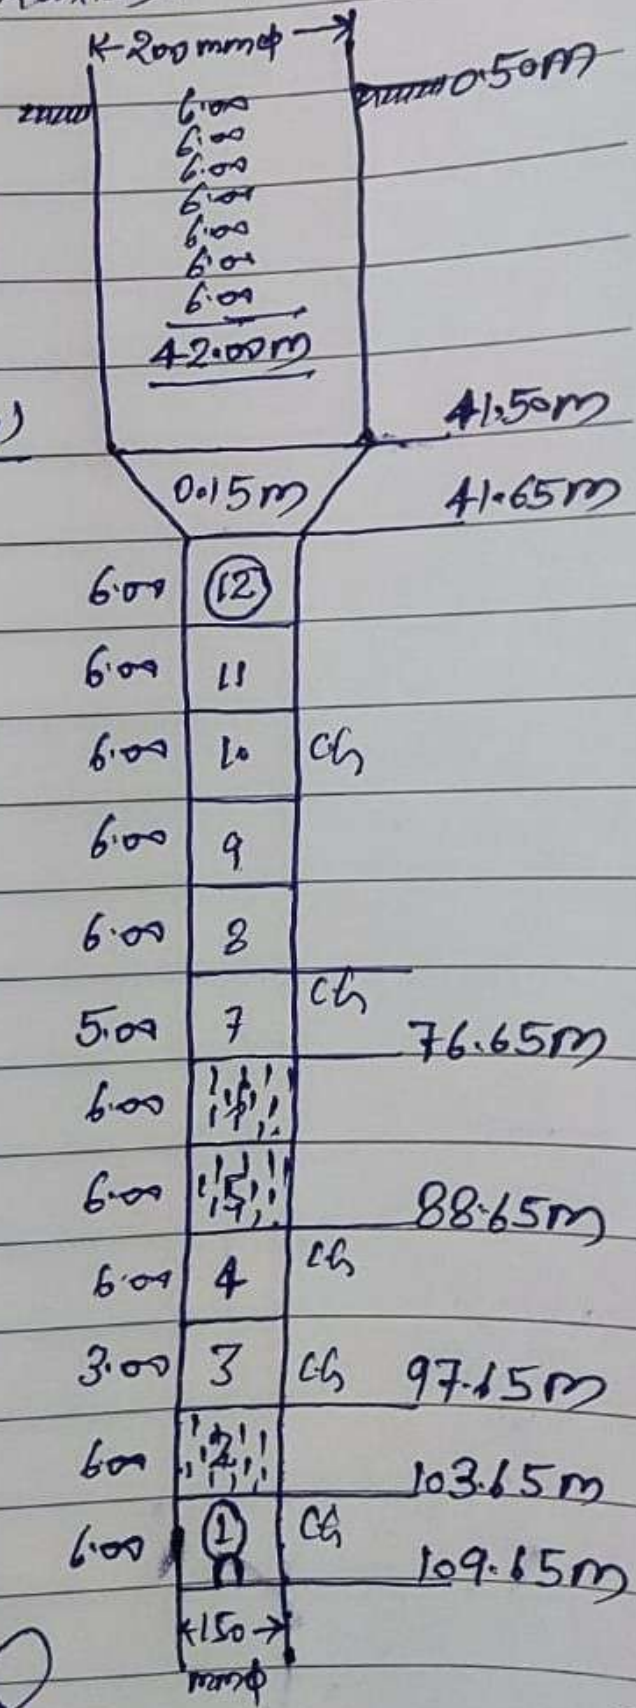 200 mmφ
0.50m
6.00
6.00
6.00
6.00
6.00
6.00
6.00
42.00m
41.50m
0.15m 41.65m
6.00 12
6.00 11
6.00 10 CG
6.00 9
6.00 8
CG
5.00 7 76.65m
6.00
6.00 5 88.65m
6.00 4 CG
3.00 3 CG 97.65m
6.00 2 103.65m
6.00 1 CG 109.65m
150
mmφ